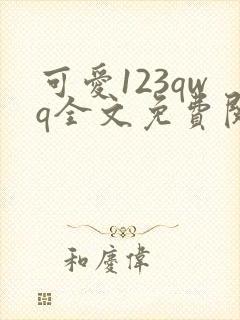 可愛123qw
q全文免費閱
和慶偉